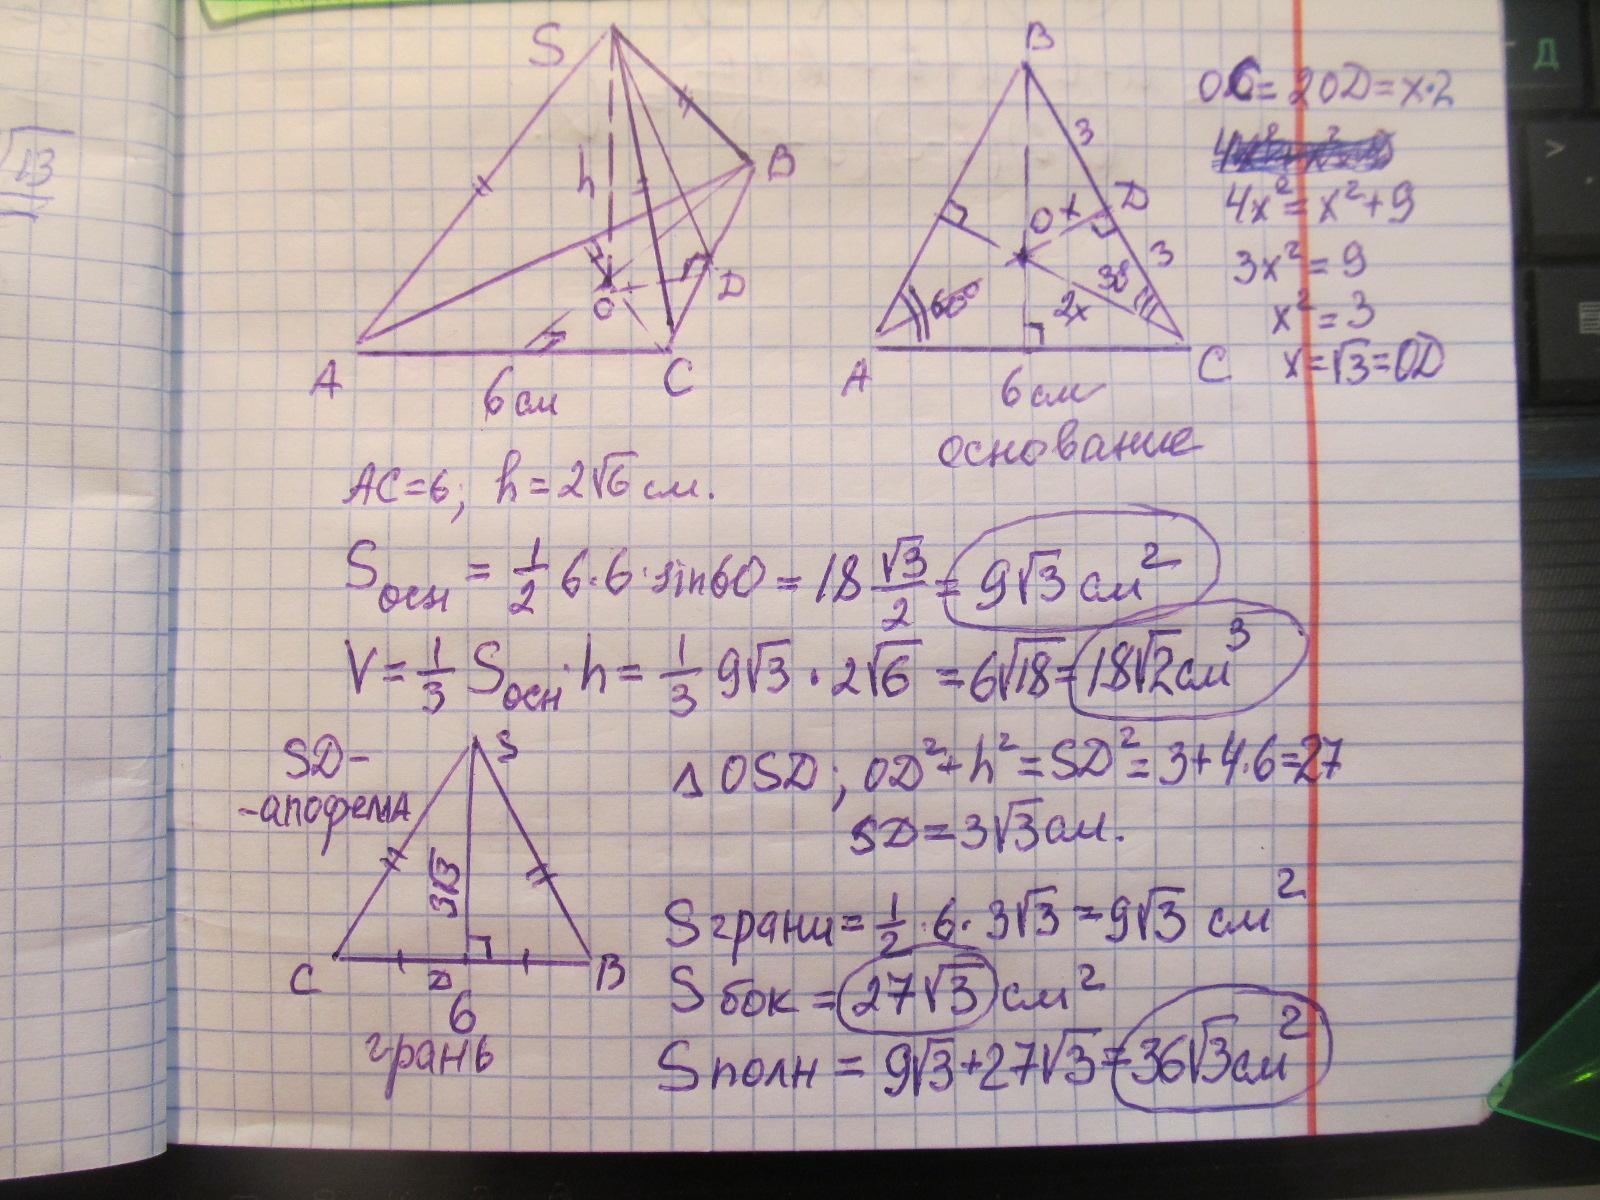 √13
S
h
B
O
D
A
C
6 см
B
3
D
O
x
3
60°
2x
30
A
C
6 см
основание
OC = 2OD = x·2
4x² = x² + 9
3x² = 9
x² = 3
x = √3 = OD
AC = 6; h = 2√6 см.
Sосн = 1/2 6·6·sin60 = 18 √3/2 = 9√3 см²
V = 1/3 Sосн·h = 1/3 9√3 · 2√6 = 6√18 = 18√2 см³
SD -
- апофема
S
3√3
C
D
B
6
грань
△ OSD; OD² + h² = SD² = 3 + 4·6 = 27
SD = 3√3 см.
S грани = 1/2 · 6 · 3√3 = 9√3 см²
S бок = 27√3 см²
S полн = 9√3 + 27√3 = 36√3 см²
Д
>